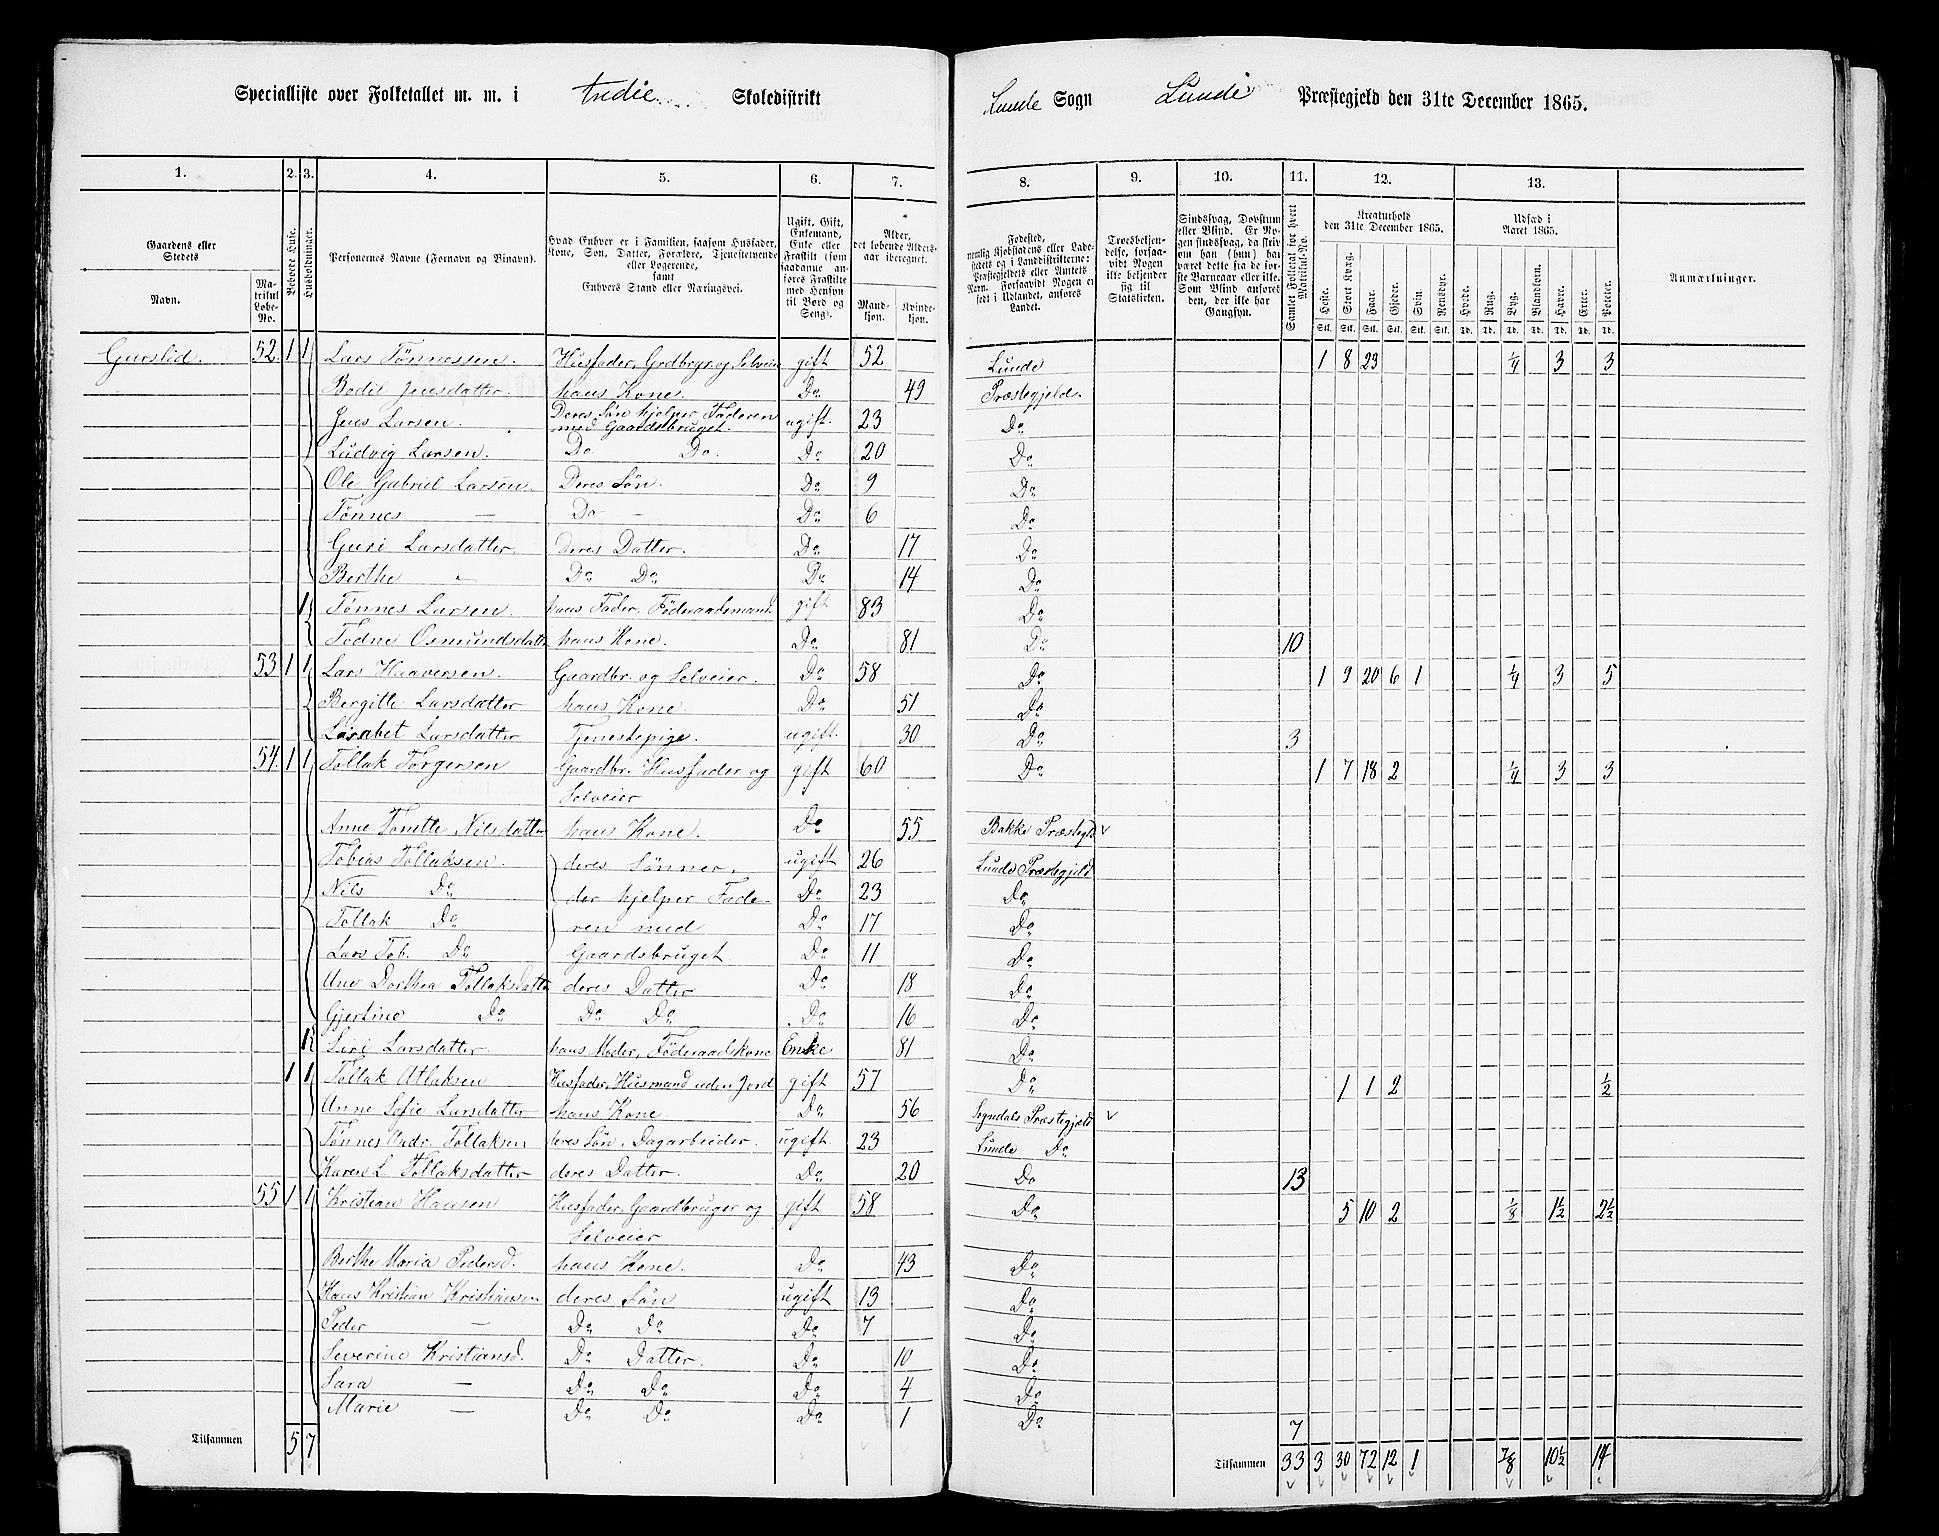 Specialliste over Folketallet m. m. i Tredie Skoledistrikt
Lunde Sogn Lunde Præstegjeld den 31te December 1865.
1. 2. 3. 4. 5. 6. 7. 8. 9. 10. 11. 12. 13.
Gaardens eller Stedets Navn.
Matrikul Løbe-No.
Beboede Huse.
Husholdninger.
Personernes Navne (Fornavn og Binavn).
Hvad Enhver er i Familien, saasom Husfader, Kone, Søn, Datter, Forældre, Tjenestetyende eller Logerende, samt Enhvers Stand eller Næringsvei.
Ugift, Gift, Enkemand, Enke eller Fraskilt (som saadanne anføres Fraskilte med Hensyn til Bord og Seng).
Alder, det løbende Alders-aar iberegnet.
Mandkjøn. Kvindekjøn.
Fødested, nemlig Kjøbstadens eller Ladestedets og i Landdistrikterne: Præstegjeldets eller Amtets Navn. Forsaavidt Nogen er født i Udlandet, anføres Landet.
Troesbekjendelse, forsaavidt Nogen ikke bekjender sig til Statskirken.
Sindssvag, Døvstum eller Blind. Er Nogen sindssvag, da skriv om han (hun) har været dette fra de første Barneaar eller ikke. Som Blind anføres den, der ikke har Gangsyn.
Samlet Folketal for hvert Matrikul-No.
Kreaturhold den 31te December 1865.
Heste. Stort Kvæg. Faar. Gjeder. Svin. Rensdyr.
Udsæd i Aaret 1865.
Hvede. Rug. Byg. Blandkorn. Havre. Erter. Poteter.
Anmærkninger.
Gurslid. 52. 1 1 Lars Tønnessen. Husfader, Grdbrgr. og Selveier gift 52 Lunde 1 8 23 1/4 3 3
Bodil Jensdatter. hans Kone. Do 49 Præstegjeld.
Jens Larsen. Deres Søn hjelper Faderen med Gaardsbruget. ugift. 23 Do
Ludvig Larsen. Do Do. Do 20 Do
Ole Gabriel Larsen. Deres Søn. Do 9 Do
Tønnes — Do — Do 6 Do
Guri Larsdatter. deres Datter. Do 17 Do
Berthe " Do Do Do 14 Do
1 Tønnes Larsen hans Fader, Føderaadsmand. gift 83 Do
Todne Osmundsdatter hans Kone. Do 81 Do 10
53 1 1 Lars Haaversen. Gaardbr. og Selveier. Do 58 Do 1 9 20 6 1 1/4 3 5
Bergitte Larsdatter hans Kone. Do 51 Do
Lisabet Larsdatter Tjenestepige. ugift. 30 Do 3
54. 1 1 Tollak Torgersen Gaardbr. Husfader og Selveier gift 60 Do 1 7 18 2 1/4 3 3
Anne Tomette Nilsdatter hans Kone. Do 55 Bakke Præstegld
Tobias Tollaksen. deres Sønner, ugift 26 Lunde Præstegjeld
Nils Do der hjelper Fade- Do 23 Do
Tollak Do ren med Do 17 Do
Lars Tob. Do Gaardsbruget Do 11 Do
Ane Dorthea Tollaksdatter deres Datter Do 18 Do
Gjertine Do Do Do Do 16 Do
Siri Larsdatter hans Moder, Føderaadskone Enke 81 Do
1 1 Tollak Atlaksen Husfader, Husmand uden Jord gift 57 Do 1 1 2 1/2
Anne Sofie Larsdatter hans Kone Do 56 Sogndals Præstegjeld
Tønnes Andr. Tollaksen deres Søn, Dagarbeider. ugift. 23 Lunde Do
Karen L. Tollaksdatter deres Datter. Do 20 Do 13
55 1 1 Kristian Hansen Husfader, Gaardbruger og Selveier gift 58 Do 5 10 2 1/8 1 1/2 2 1/2
Berthe Maria Pedersd. hans Kone. Do 43 Do
Hans Kristian Kristiansen deres Søn ugift 13 Do
Peder — Do Do Do 7 Do
Severine Kristiansd. Do Datter. Do 10 Do
Sara — Do Do Do 4 Do
Marie — Do Do Do 1 Do 7
Tilsammen 5 7 Tilsammen 33 3 30 72 12 1 7/8 10 1/2 14